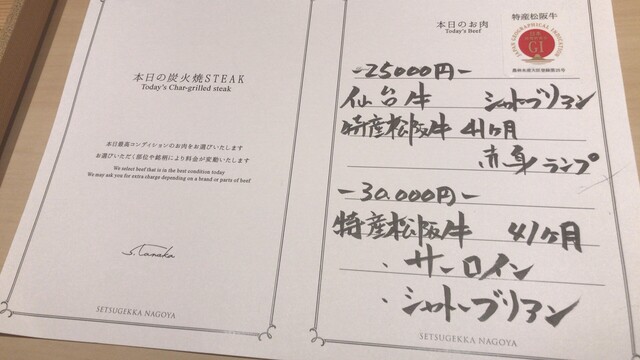 本日の炭火焼STEAK
Today's Char-grilled steak
本日最高コンディションのお肉をお選びいたします
お選びいただく部位や銘柄により料金が変動いたします
We select beef that is in the best condition today
We may ask you for extra charge depending on a brand or parts of beef
S. Tanaka
SETSUGEKKA NAGOYA
本日のお肉
Today's Beef
特産松阪牛
JAPAN GEOGRAPHICAL INDICATION
GI
-25000円-
仙台牛 シャトーブリアン
特産松阪牛 41ヶ月
赤身ランプ
-30.000円-
特産松阪牛 41ヶ月
・サーロイン
・シャトーブリアン
SETSUGEKKA NAGOYA